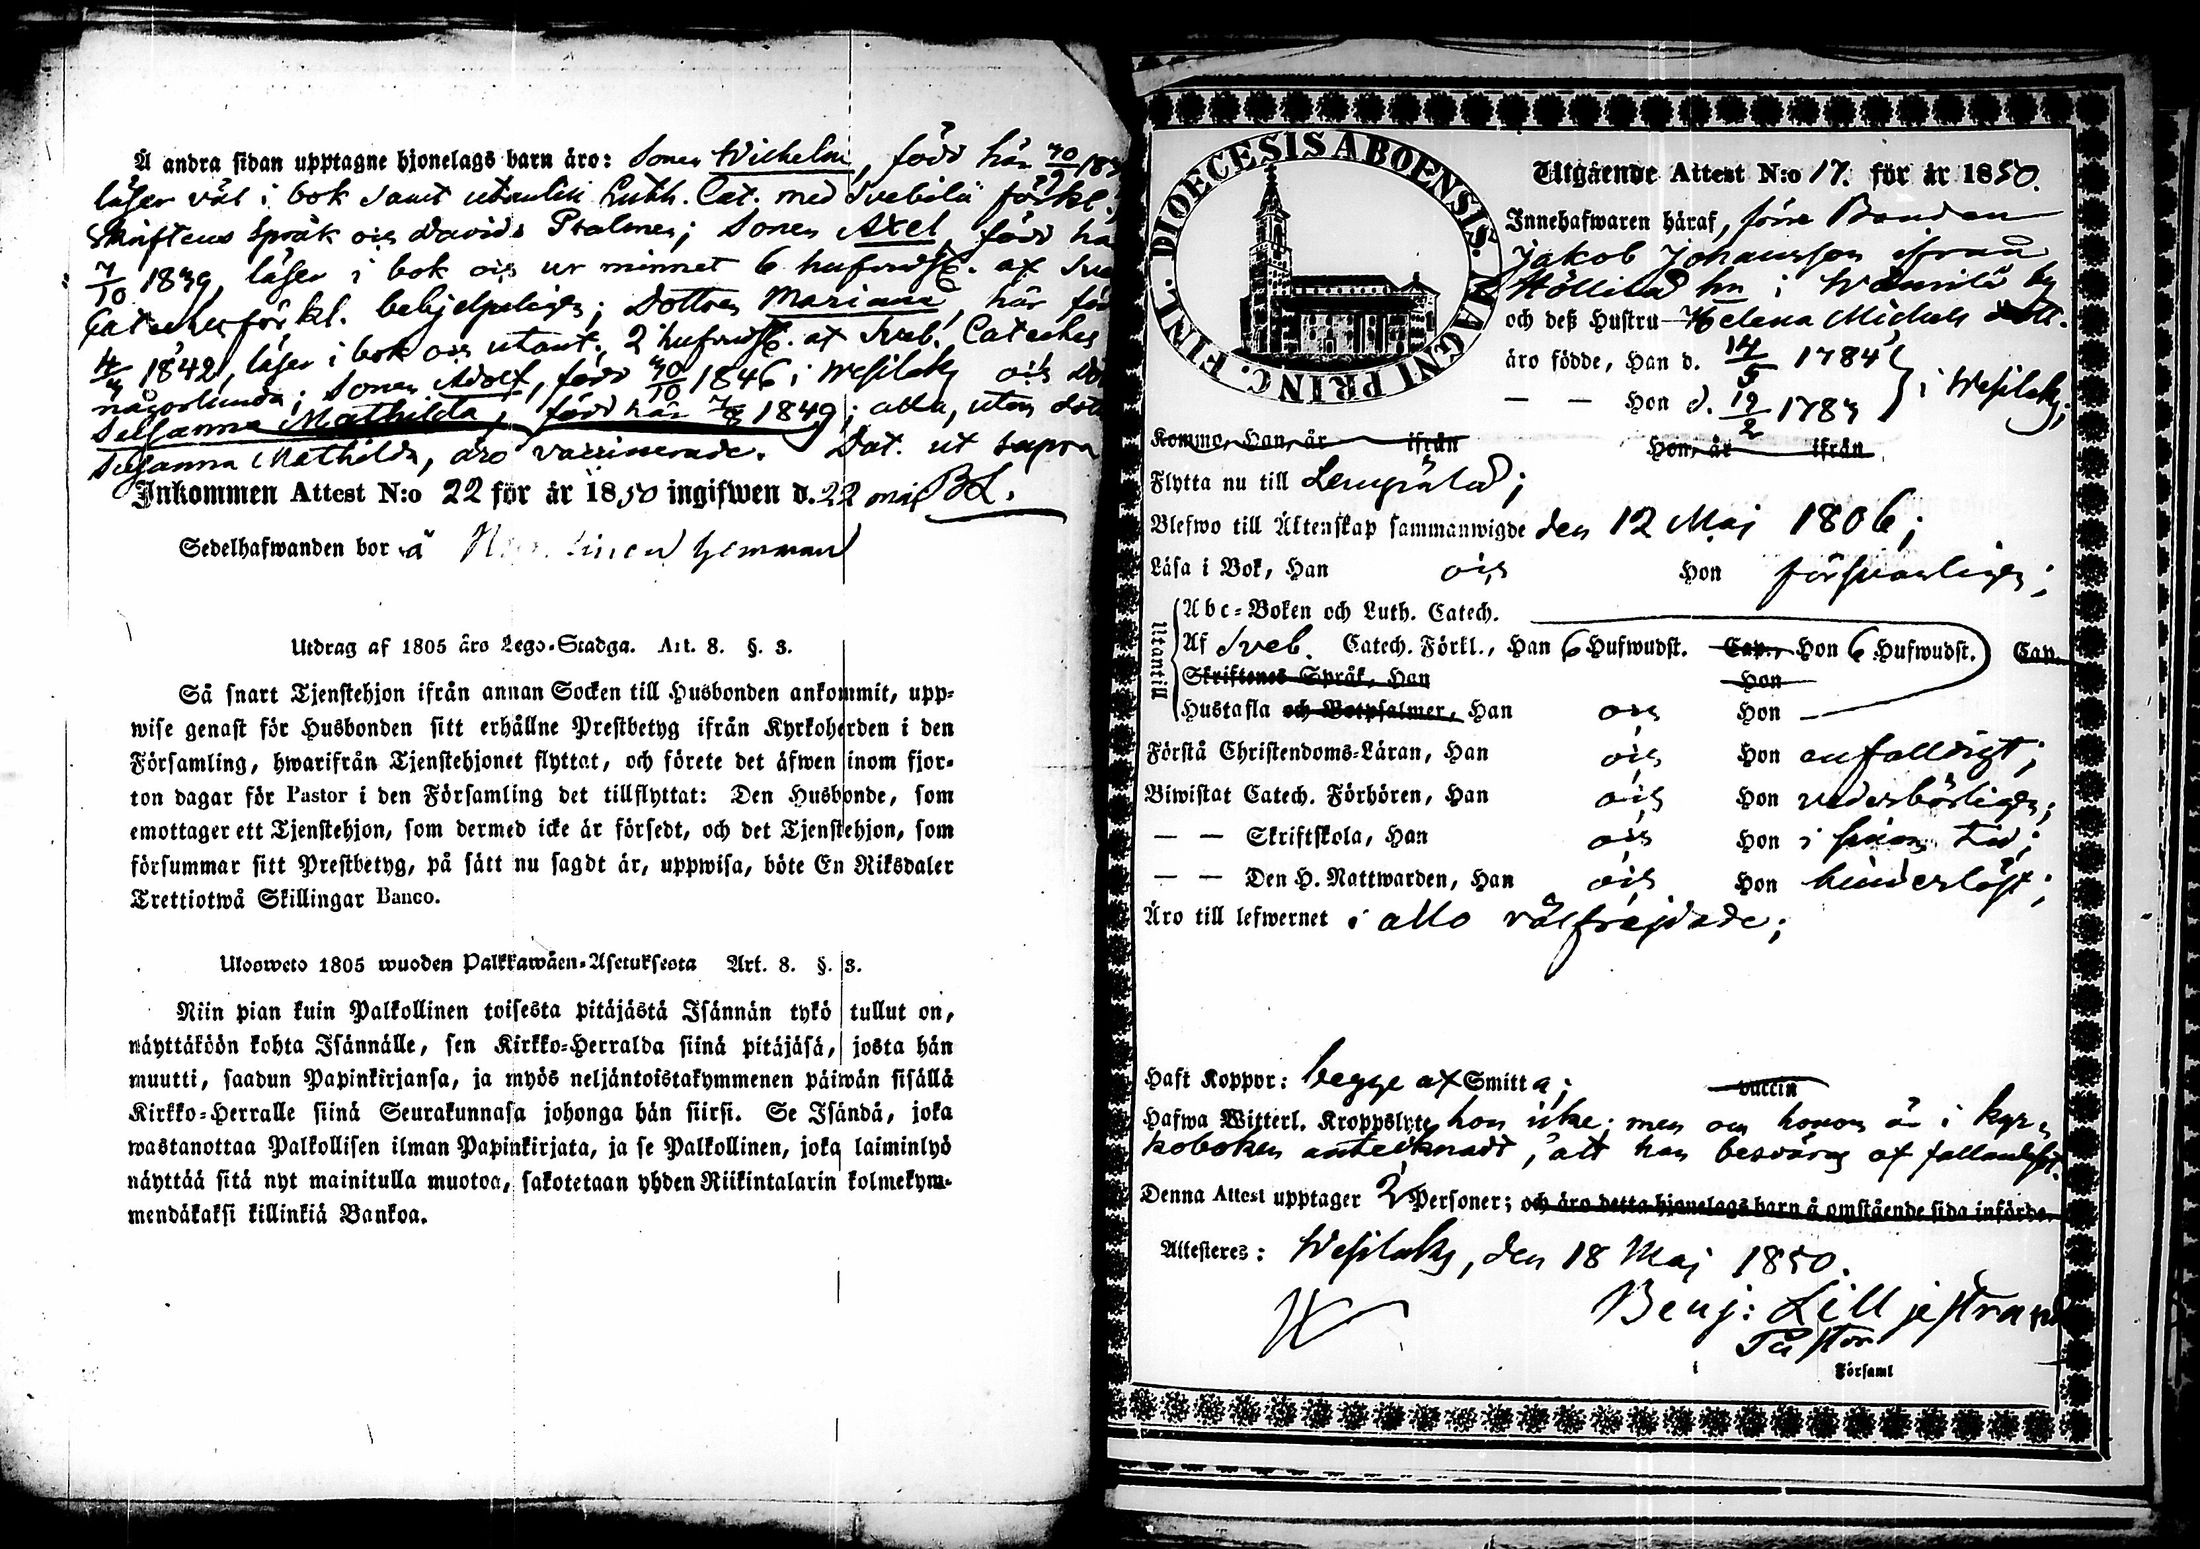 Å andra sidan upptagne hjonelags barn äro: Sonen Wilhelm, född här 30/9 183
läser väl i bok samt utantill Luth. Cat. med Svebilii förkl.,
Skriftens Språk och Davids Psalmer; Sonen Axel född hä
7/10 1839, läser i bok och ur minnet 6 hufvudst. af Sve
Cateches förkl. behjelpligen; Dottren Mariana, här föd
4/3 1842, läser i bok och utant. 2 hufvudst. af Sveb. Cateches
någorlunda; Sonen Adolf, född 30/10 1846 i Wesilaks och Dot
Susanna Mathilda, född här 1849; alla, utom dott
Susanna Mathilda, äro vaccinerade. Dat. ut supra
BL.
Inkommen Attest N:o 22 för år 1850 ingifwen d. 22 maj
Sedelhafwanden bor å hemman
Utdrag af 1805 års Lego-Stadga. Art. 8. §. 3.
Så snart Tjenstehjon ifrån annan Socken till Husbonden ankommit, upp-
wise genast för Husbonden sitt erhållne Prestbetyg ifrån Kyrkoherden i den
Församling, hwarifrån Tjenstehjonet flyttat, och förete det äfwen inom fjor-
ton dagar för Pastor i den Församling det tillflyttat: Den Husbonde, som
emottager ett Tjenstehjon, som dermed icke är försedt, och det Tjenstehjon, som
försummar sitt Prestbetyg, på sätt nu sagdt är, uppwisa, böte En Riksdaler
Trettiotwå Skillingar Banco.
Ulosweto 1805 wuoden Palkkawäen-Asetuksesta Art. 8. §. 3.
Niin pian kuin Palkollinen toisesta pitäjästä Isännän tykö tullut on,
näyttäköön kohta Isännälle, sen Kirkko-Herralda siinä pitäjäsä, josta hän
muutti, saadun Papinkirjansa, ja myös neljäntoistakymmenen päiwän sisällä
Kirkko-Herralle siinä Seurakunnasa johonga hän siirsi. Se Isändä, joka
wastanottaa Palkollisen ilman Papinkirjata, ja se Palkollinen, joka laiminlyö
näyttää sitä nyt mainitulla muotoa, sakotetaan yhden Riikintalarin kolmekym-
mendäkaksi killinkiä Bankoa.
FINL. DIOECESIS ABOENSIS. MAGNI PRINC.
Utgående Attest N:o 17. för år 1850.
Innehafwaren häraf, förre Bonden
Jakob Johansson ifrån
Höllilä hn i by
och deß Hustru Helena Michels dott.
äro födde, Han d. 14/5 1784
— — Hon d. 19/2 1783 } i Wesilaks;
Kommo, Han, är ifrån Hon, är ifrån
Flytta nu till Lempälä;
Blefwo till Äktenskap sammanwigde den 12 Maj 1806;
Läsa i Bok, Han och Hon försvarligen;
Utantill
Abc-Boken och Luth. Catech.
Af Sveb. Catech. Förkl., Han 6 Hufwudst. Cap., Hon 6 Hufwudst. Cap.
Skriftenes Språk, Han Hon
Hustafla och Botpsalmer, Han och Hon —
Förstå Christendoms-Läran, Han och Hon enfalldigt;
Biwistat Catech. Förhören, Han och Hon vederbörligen;
— — Skriftskola, Han och Hon i sinom tid;
— — Den H. Nattwarden, Han och Hon hinderlöst;
Äro till lefwernet i allo välfräjdade;
Haft Koppor: begge af Smitta; vaccin
Hafwa Witterl. Kroppslyte hon icke; men om honom är i kyr-
koboken antecknadt, att han besväras af fallandesot.
Denna Attest upptager 2 Personer; och äro detta hjonelags barn å omstående sida införde.
Attesteres: Wesilaks, den 18 Maj 1850.
Benj: Lilljestrand
Pastor
i Församl